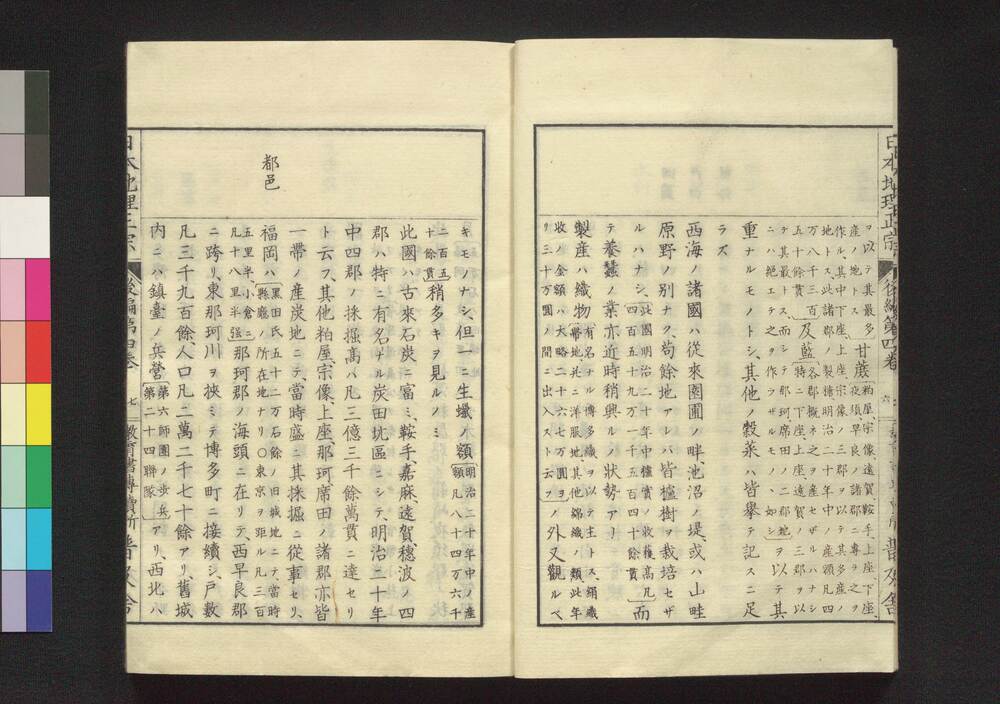 ヲ以テ其最多
産ノ地トス
甘蔗
粕屋、宗像、遠賀、鞍手、上座、下座、
夜須、早良ノ諸郡ニ專ラ之ヲ
作ル、其中下座、上座、宗像ノ三郡ヲ以テ其多産ノ
地トス、此諸郡ノ製糖明治二十年中ノ産額凡四
万八千三百
五十餘貫
及藍
各郡概ネ之ヲ産セザルハナシ
特ニ下座、上座、遠賀ノ三郡ヲ以
テ其最トス、而シテ那珂席田ノ二郡地
ニハ絕エテ之ヲ作ラザルモノヽ如シ
ヲ以テ其
重ナルモノトシ、其他ノ穀菜ハ皆擧テ記スニ足
ラズ
西海ノ諸國ハ從來園圃ノ畔、池沼ノ堤、或ハ山畦
原野ノ別ナク、苟餘地アレバ皆櫨樹ヲ栽培セザ
ルハナシ、
此國明治二十年中櫨實ノ收穫高凡
四百五十九万一千五百四十餘貫
而
テ養蠶ノ業亦近時稍興ルノ狀勢アリ
製産ハ織物
有名ナル博多織ヲ以テ主トス、絹織
帶地、袴地、洋服地、其他錦織ノ類此年
收ノ金額ハ大略二十六七万圓ヨ
リ三十万圓ノ間ニ出入スト云フ
ノ外又觀ルベ
日本地理正宗
後編第四卷
六
キモノナシ、但一ニ生蠟ノ額
明治二十年中ノ産
額凡八十四万六千
二百五
十餘貫
稍多キヲ見ルノミ
此國ハ古來石炭ニ富ミ、鞍手、嘉麻、遠賀穗波ノ四
郡ハ特ニ有名ナル炭田坑區ニシテ、明治二十年
中四郡ノ採掘高ハ凡三億三千餘萬貫ニ達セリ
ト云フ、其他粕屋、宗像、上座、那珂、席田ノ諸郡亦皆
一帶ノ産炭地ニテ、當時盛ニ其採掘ニ從事セリ、
都邑
福岡ハ
黑田氏五十二万石餘ノ旧城地ニテ、當時
縣廳ノ所在地ナリ○東京ヲ距ル凡三百
五里半、小倉ニ
凡十八里半强
那珂郡ノ海頭ニ在リテ、西早良郡
ニ跨リ、東那珂川ヲ挾ミテ博多町ニ接續シ、戶數
凡三千九百餘人口凡二萬二千七十餘アリ、舊城
內ニハ鎭臺ノ兵營
第六師團ノ步兵
第二十四聯隊
アリ、西北ハ
日本地理正宗
後編第四卷
七
教育書專賣所 普及舍